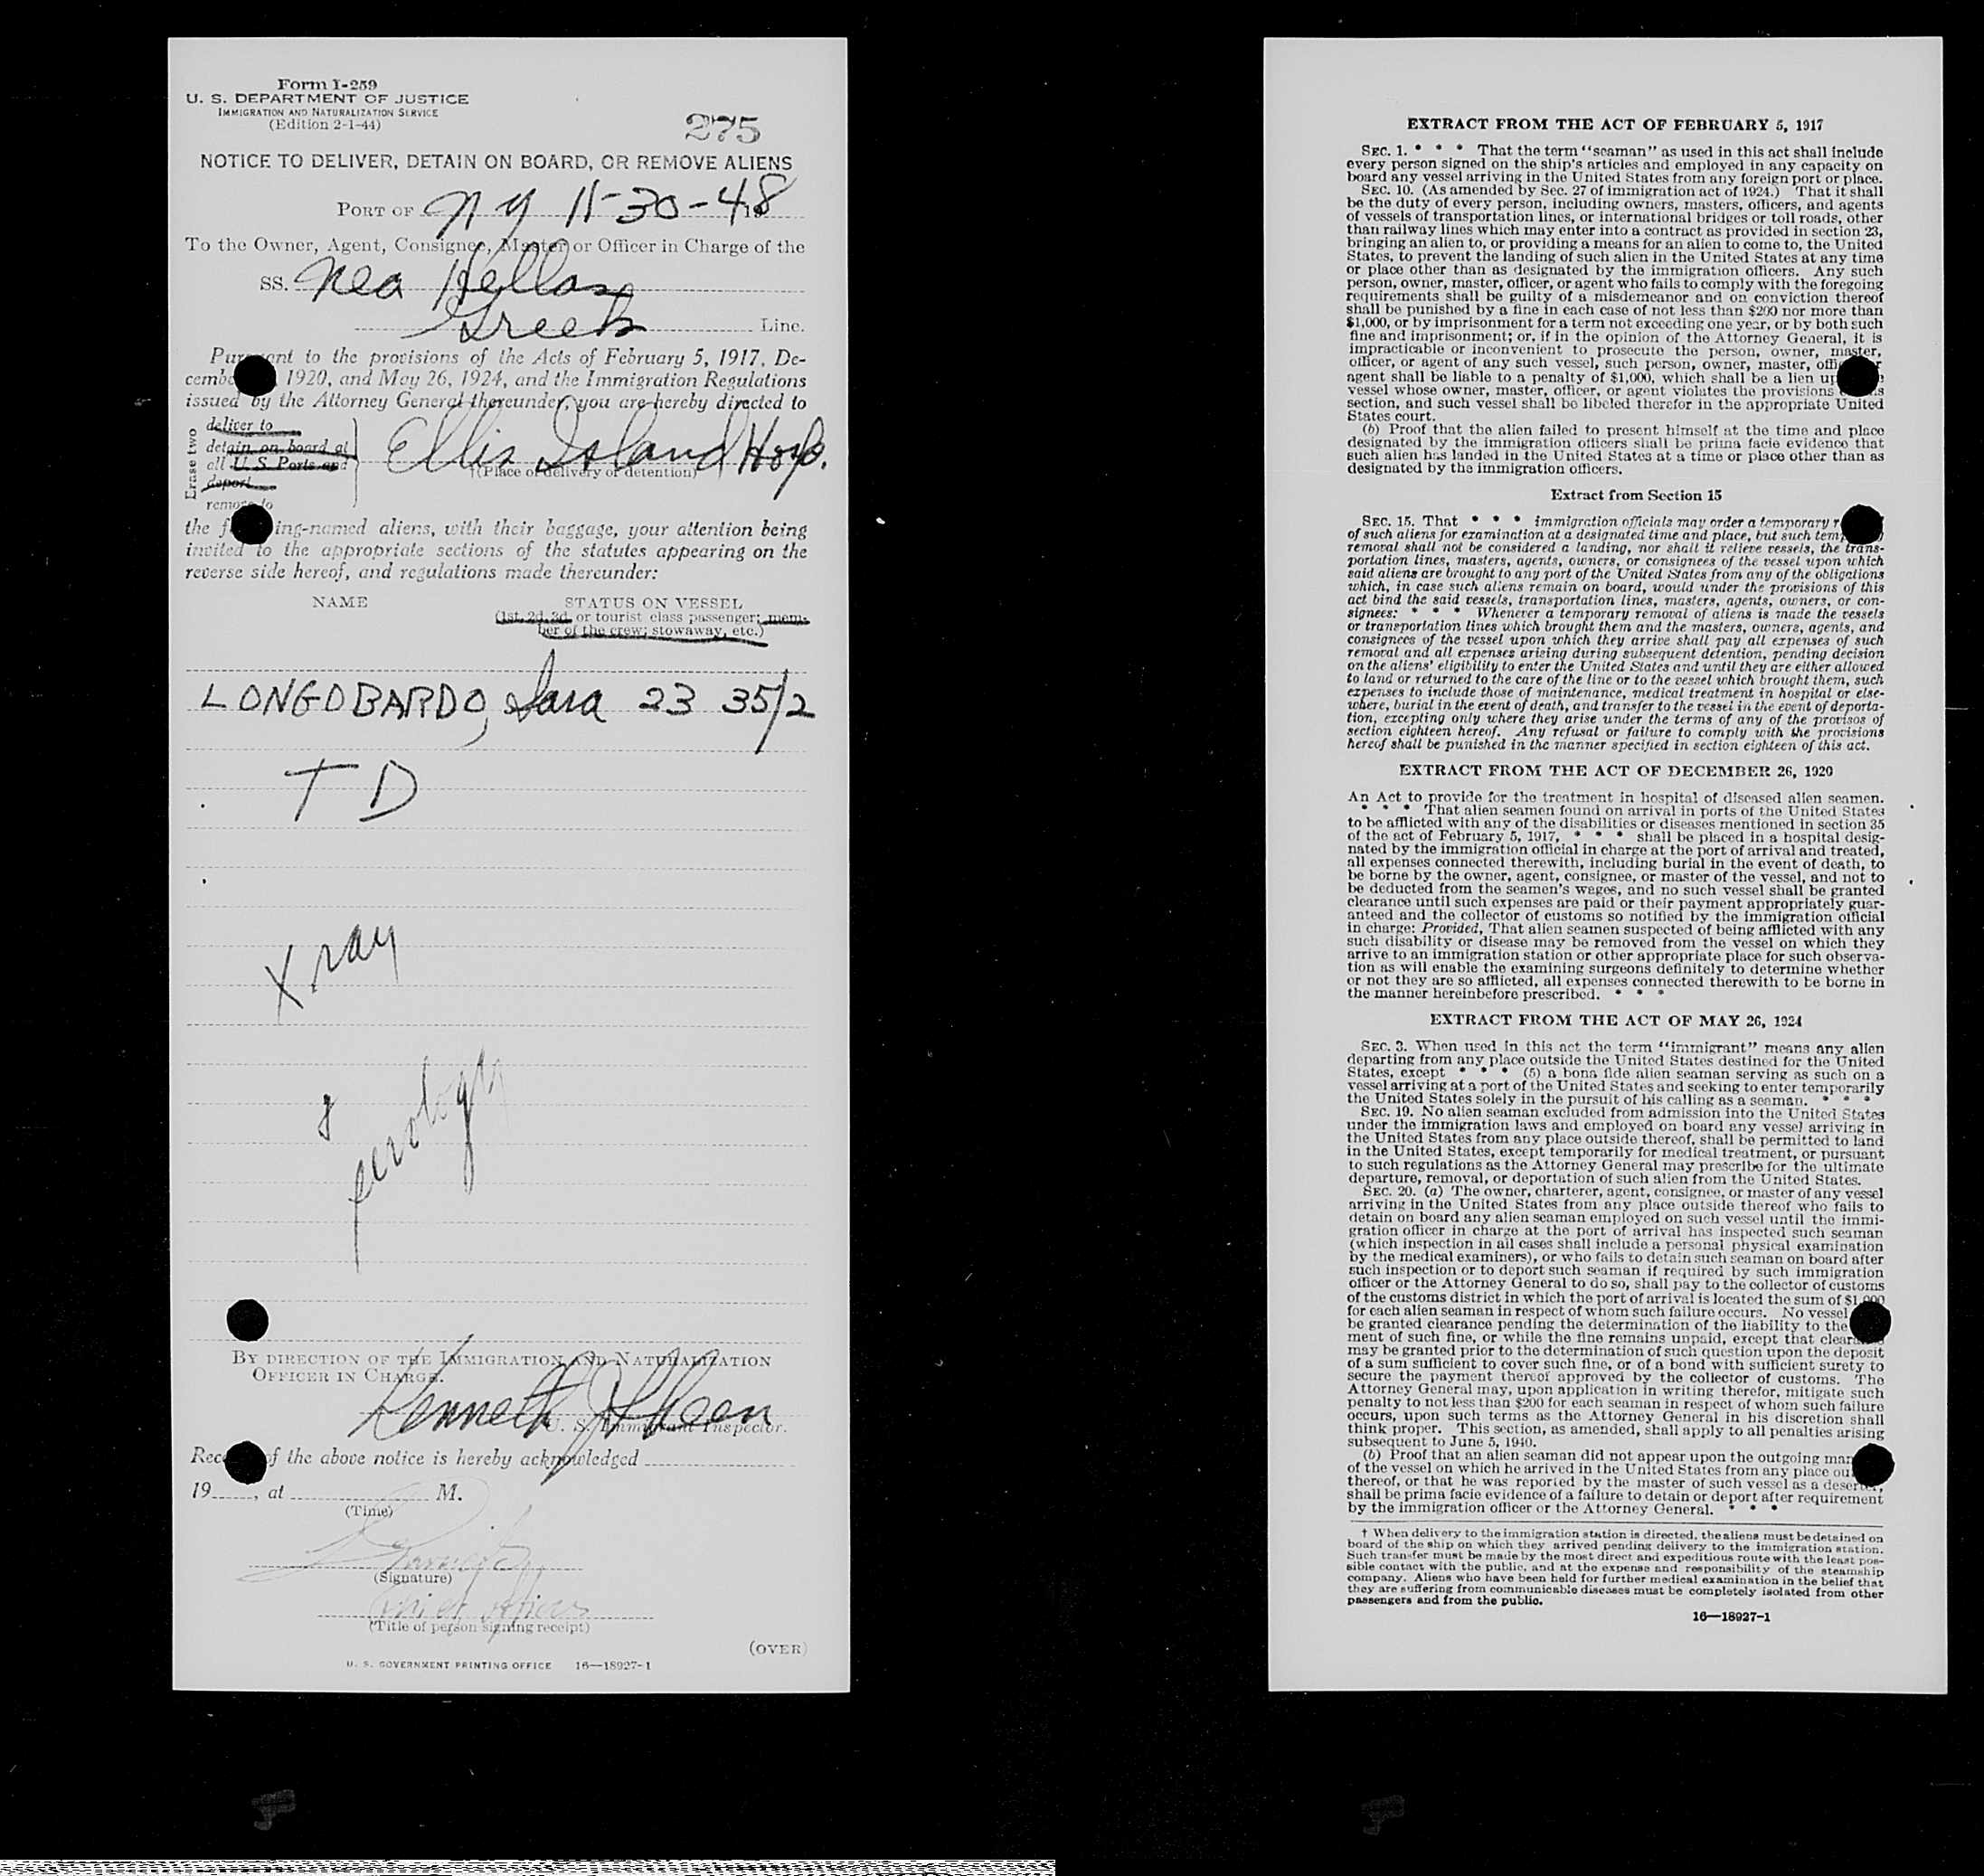 Form I-259
U. S. DEPARTMENT OF JUSTICE
IMMIGRATION AND NATURALIZATION SERVICE
(Edition 2-1-44)
275
NOTICE TO DELIVER, DETAIN ON BOARD, OR REMOVE ALIENS
PORT OF N Y 11-30-48
To the Owner, Agent, Consignee, Master or Officer in Charge of the
SS. Nea Hellas
Greek Line.
Pursuant to the provisions of the Acts of February 5, 1917, De-
cember 1920, and May 26, 1924, and the Immigration Regulations
issued by the Attorney General thereunder, you are hereby directed to
Erase two
deliver to
detain on board at
all U. S. Ports and
deport
remove to
Ellis Island Hosp.
†(Place of delivery or detention)
the f ing-named aliens, with their baggage, your attention being
invited to the appropriate sections of the statutes appearing on the
reverse side hereof, and regulations made thereunder:
NAME STATUS ON VESSEL
(1st, 2d, 3d, or tourist class passenger; mem-
ber of the crew; stowaway, etc.)
LONGOBARDO, Sara 23 35/2
T D
X ray
&
serology
BY DIRECTION OF THE IMMIGRATION AND NATURALIZATION
OFFICER IN CHARGE.
Kenneth J
U. S. Immigrant Inspector.
Rec of the above notice is hereby acknowledged
19 , at M.
(Time)
(Signature)
(Title of person signing receipt)
(OVER)
U. S. GOVERNMENT PRINTING OFFICE 16—18927-1
EXTRACT FROM THE ACT OF FEBRUARY 5, 1917
SEC. 1. * * * That the term "seaman" as used in this act shall include
every person signed on the ship's articles and employed in any capacity on
board any vessel arriving in the United States from any foreign port or place.
SEC. 10. (As amended by Sec. 27 of immigration act of 1924.) That it shall
be the duty of every person, including owners, masters, officers, and agents
of vessels of transportation lines, or international bridges or toll roads, other
than railway lines which may enter into a contract as provided in section 23,
bringing an alien to, or providing a means for an alien to come to, the United
States, to prevent the landing of such alien in the United States at any time
or place other than as designated by the immigration officers. Any such
person, owner, master, officer, or agent who fails to comply with the foregoing
requirements shall be guilty of a misdemeanor and on conviction thereof
shall be punished by a fine in each case of not less than $200 nor more than
$1,000, or by imprisonment for a term not exceeding one year, or by both such
fine and imprisonment; or, if in the opinion of the Attorney General, it is
impracticable or inconvenient to prosecute the person, owner, master,
officer, or agent of any such vessel, such person, owner, master, offi
agent shall be liable to a penalty of $1,000, which shall be a lien up
vessel whose owner, master, officer, or agent violates the provisions
section, and such vessel shall be libeled therefor in the appropriate United
States court.
(b) Proof that the alien failed to present himself at the time and place
designated by the immigration officers shall be prima facie evidence that
such alien has landed in the United States at a time or place other than as
designated by the immigration officers.
Extract from Section 15
SEC. 15. That * * * immigration officials may order a temporary r
of such aliens for examination at a designated time and place, but such temp
removal shall not be considered a landing, nor shall it relieve vessels, the trans-
portation lines, masters, agents, owners, or consignees of the vessel upon which
said aliens are brought to any port of the United States from any of the obligations
which, in case such aliens remain on board, would under the provisions of this
act bind the said vessels, transportation lines, masters, agents, owners, or con-
signees: * * * Whenever a temporary removal of aliens is made the vessels
or transportation lines which brought them and the masters, owners, agents, and
consignees of the vessel upon which they arrive shall pay all expenses of such
removal and all expenses arising during subsequent detention, pending decision
on the aliens' eligibility to enter the United States and until they are either allowed
to land or returned to the care of the line or to the vessel which brought them, such
expenses to include those of maintenance, medical treatment in hospital or else-
where, burial in the event of death, and transfer to the vessel in the event of deporta-
tion, excepting only where they arise under the terms of any of the provisos of
section eighteen hereof. Any refusal or failure to comply with the provisions
hereof shall be punished in the manner specified in section eighteen of this act.
EXTRACT FROM THE ACT OF DECEMBER 26, 1920
An Act to provide for the treatment in hospital of diseased alien seamen.
* * * That alien seamen found on arrival in ports of the United States
to be afflicted with any of the disabilities or diseases mentioned in section 35
of the act of February 5, 1917, * * * shall be placed in a hospital desig-
nated by the immigration official in charge at the port of arrival and treated,
all expenses connected therewith, including burial in the event of death, to
be borne by the owner, agent, consignee, or master of the vessel, and not to
be deducted from the seamen's wages, and no such vessel shall be granted
clearance until such expenses are paid or their payment appropriately guar-
anteed and the collector of customs so notified by the immigration official
in charge: Provided, That alien seamen suspected of being afflicted with any
such disability or disease may be removed from the vessel on which they
arrive to an immigration station or other appropriate place for such observa-
tion as will enable the examining surgeons definitely to determine whether
or not they are so afflicted, all expenses connected therewith to be borne in
the manner hereinbefore prescribed. * * *
EXTRACT FROM THE ACT OF MAY 26, 1924
SEC. 3. When used in this act the term "immigrant" means any alien
departing from any place outside the United States destined for the United
States, except * * * (5) a bona fide alien seaman serving as such on a
vessel arriving at a port of the United States and seeking to enter temporarily
the United States solely in the pursuit of his calling as a seaman. * * *
SEC. 19. No alien seaman excluded from admission into the United States
under the immigration laws and employed on board any vessel arriving in
the United States from any place outside thereof, shall be permitted to land
in the United States, except temporarily for medical treatment, or pursuant
to such regulations as the Attorney General may prescribe for the ultimate
departure, removal, or deportation of such alien from the United States.
SEC. 20. (a) The owner, charterer, agent, consignee, or master of any vessel
arriving in the United States from any place outside thereof who fails to
detain on board any alien seaman employed on such vessel until the immi-
gration officer in charge at the port of arrival has inspected such seaman
(which inspection in all cases shall include a personal physical examination
by the medical examiners), or who fails to detain such seaman on board after
such inspection or to deport such seaman if required by such immigration
officer or the Attorney General to do so, shall pay to the collector of customs
of the customs district in which the port of arrival is located the sum of $1,000
for each alien seaman in respect of whom such failure occurs. No vessel
be granted clearance pending the determination of the liability to the
ment of such fine, or while the fine remains unpaid, except that clear
may be granted prior to the determination of such question upon the deposit
of a sum sufficient to cover such fine, or of a bond with sufficient surety to
secure the payment thereof approved by the collector of customs. The
Attorney General may, upon application in writing therefor, mitigate such
penalty to not less than $200 for each seaman in respect of whom such failure
occurs, upon such terms as the Attorney General in his discretion shall
think proper. This section, as amended, shall apply to all penalties arising
subsequent to June 5, 1940.
(b) Proof that an alien seaman did not appear upon the outgoing man
of the vessel on which he arrived in the United States from any place ou
thereof, or that he was reported by the master of such vessel as a deserter,
shall be prima facie evidence of a failure to detain or deport after requirement
by the immigration officer or the Attorney General. * * *
† When delivery to the immigration station is directed, the aliens must be detained on
board of the ship on which they arrived pending delivery to the immigration station.
Such transfer must be made by the most direct and expeditious route with the least pos-
sible contact with the public, and at the expense and responsibility of the steamship
company. Aliens who have been held for further medical examination in the belief that
they are suffering from communicable diseases must be completely isolated from other
passengers and from the public.
16—18927-1